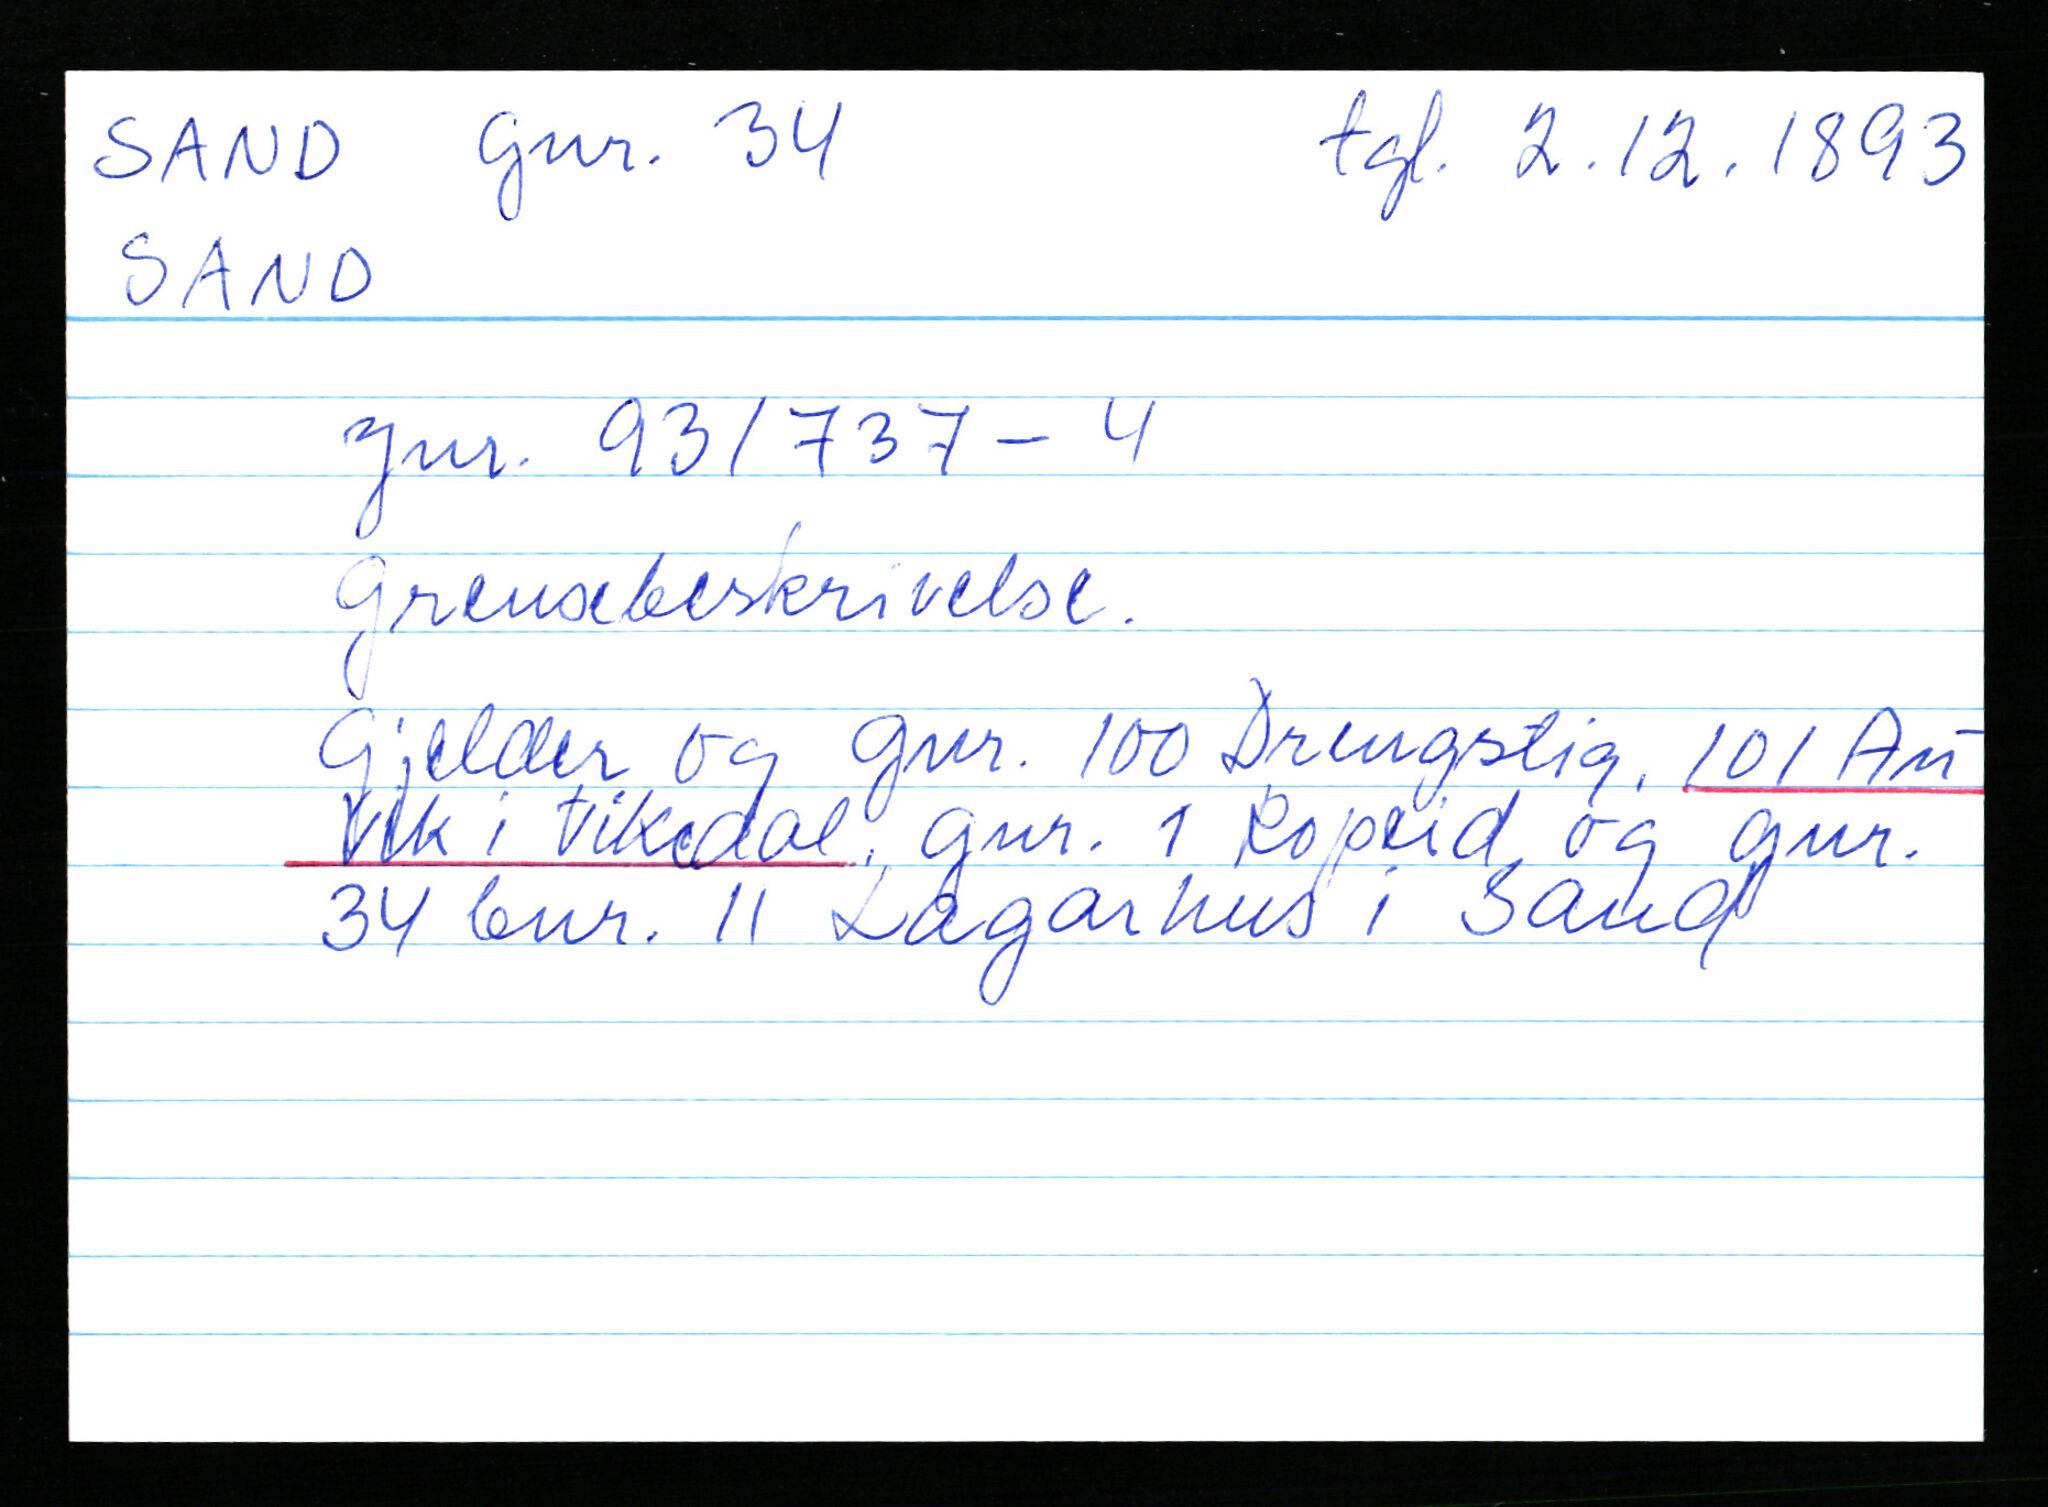 SAND gnr. 34 tgl. 2.12.1893
SAND
gnr. 93/737-4
Grensebeskrivelse.
Gjelder og gnr. 100 Drengstig, 101 An-
vik i Vikedal, gnr. 1 Ropeid og gnr.
34 bnr. 11 Lagarhus i Sand